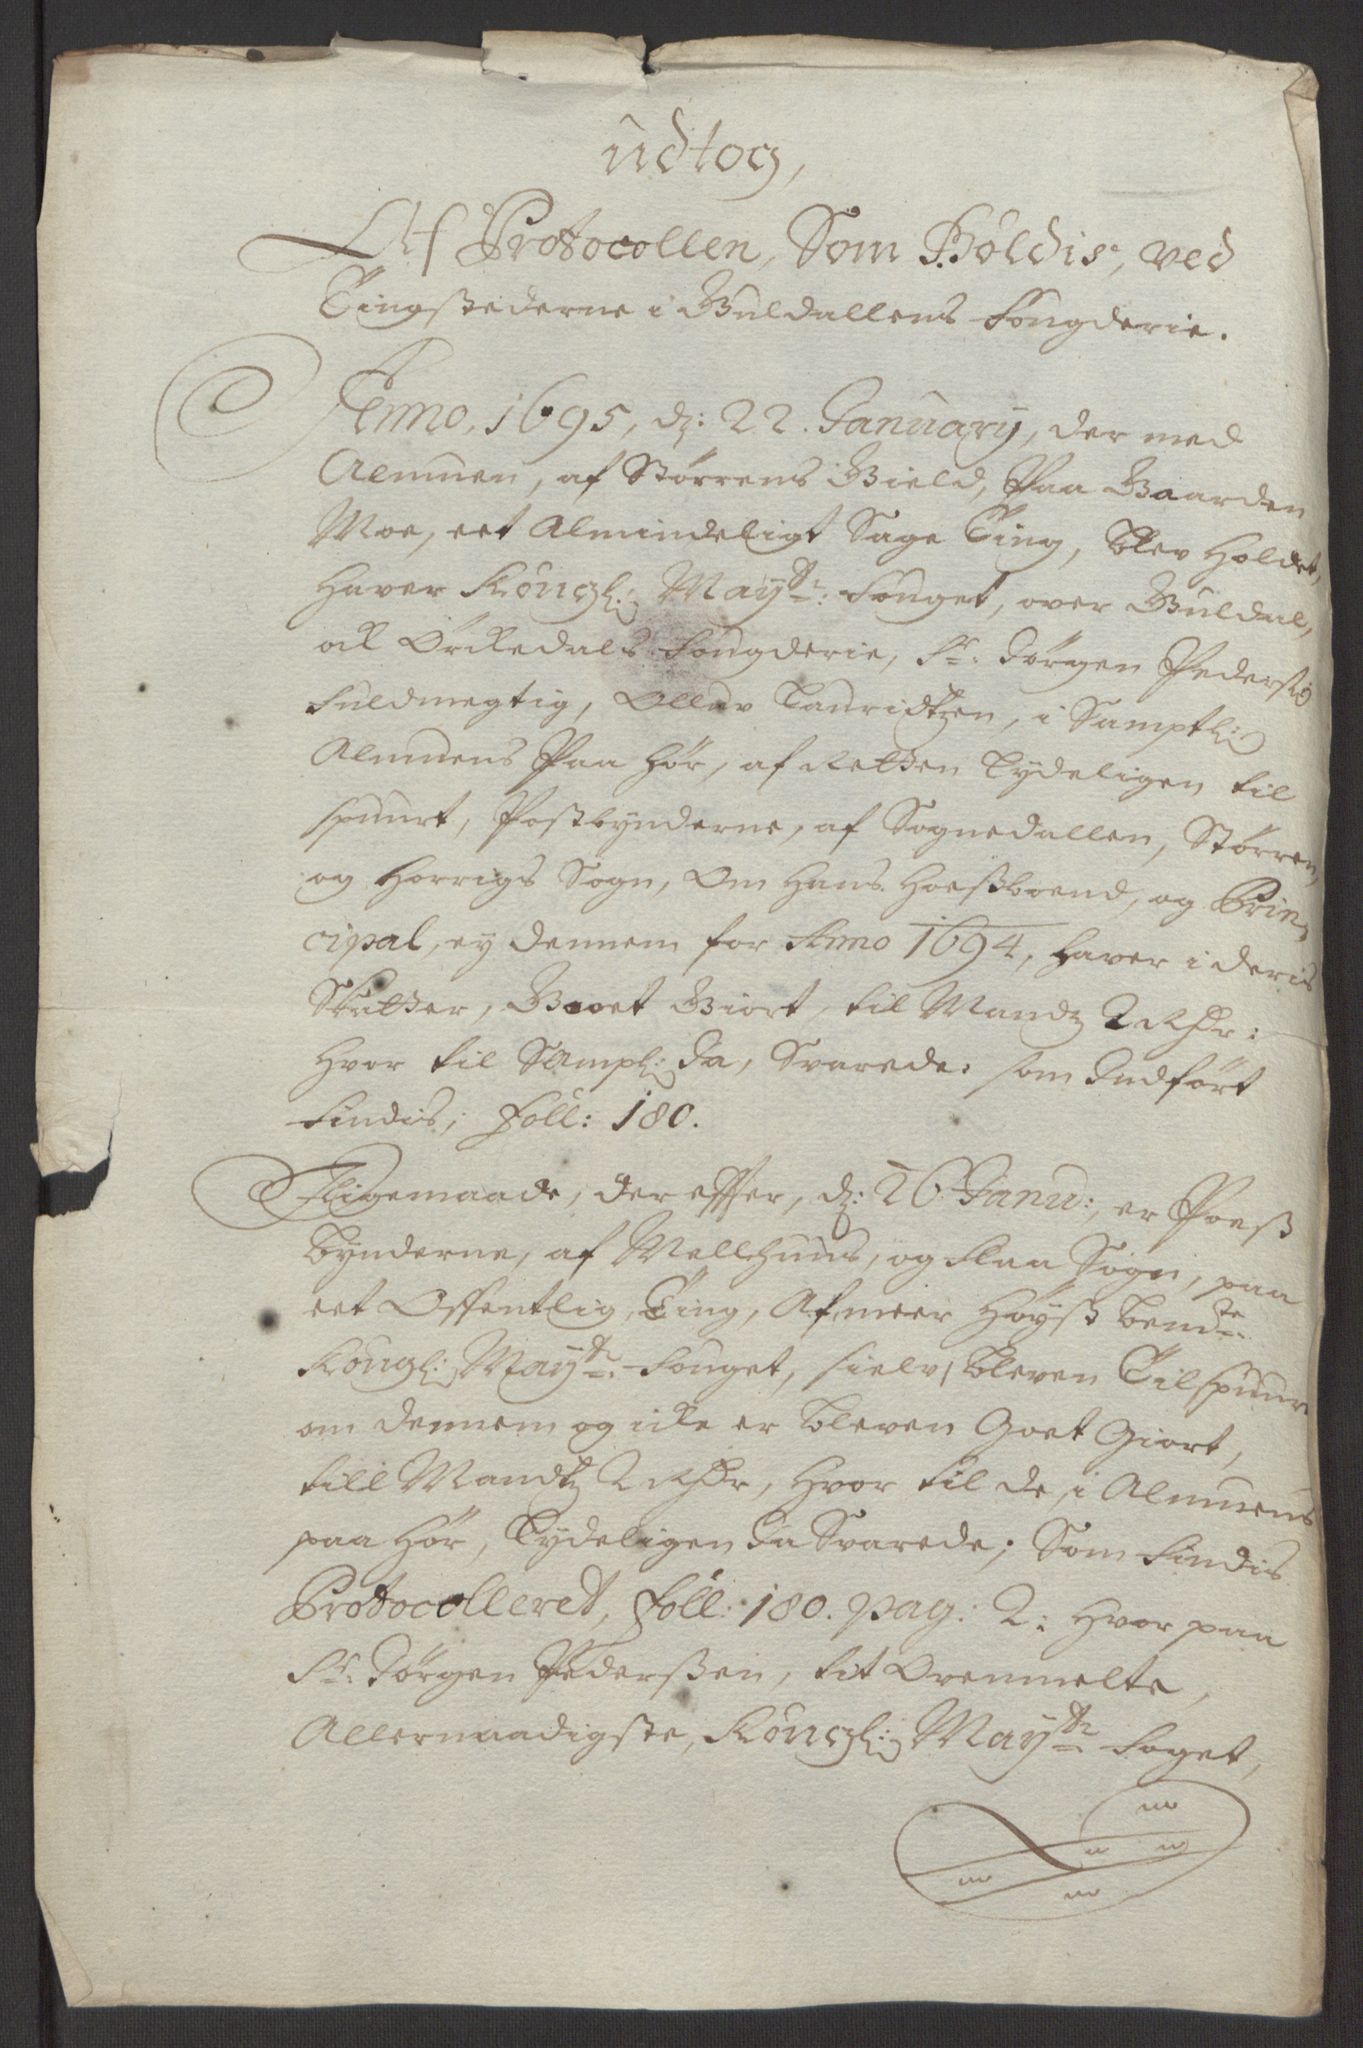 Udtog,
Af Protocollen, Som Holdis, ved
Tingstederne i Guldallens Fougderie.
Anno, 1695, d: 22. January, der med
Almuen, af Størrens Gield, Paa Gaarden
Moe, eet Almindeligt Sage Ting, blev Holdet,
haver Kongl: Mayts: Fouget, over Guldal,
ock Orckedals Fougderie, Sr: Jørgen Pedersens
Fuldmegtig, Olluv Lauridtzen, i Samptl:
Almuens Paa hør, af Retten Tydeligen til
spuurt, Postbynderne, af Sognedallen, Størren,
og Horrigs Sogn, Om Hans Hoesbond, og Prin-
cipal, ey dennem for Anno 1694, haver i deris
Skatter, Goet Giort, til Mandz 2 Rdr:
Hvor til Sampl: Ja, Svarede: som Indført
Findis; Foll: 180.
Iligemaade, der effter, d: 26 Janu:, er Post
bynderne, af Mellhuus, og Flaa Sogn, paa
eet Offentlig Ting, Af meer Høyst bemte
Kongl: Mayts: Fouget, sielv, bleven Tilspuurt
om dennem og icke er bleven Goet Giort,
till Mandtz 2 Rdr, Hvor til de, i Almuens
paa hør, Tydeligen Ja Svarede; Som Findis
Protocolleret, Foll: 180. pag: 2: Hvor paa
Sr: Jørgen Pedersen, tit Ovenmelte,
Allernaadigste, Kongl: Mayts Foget,